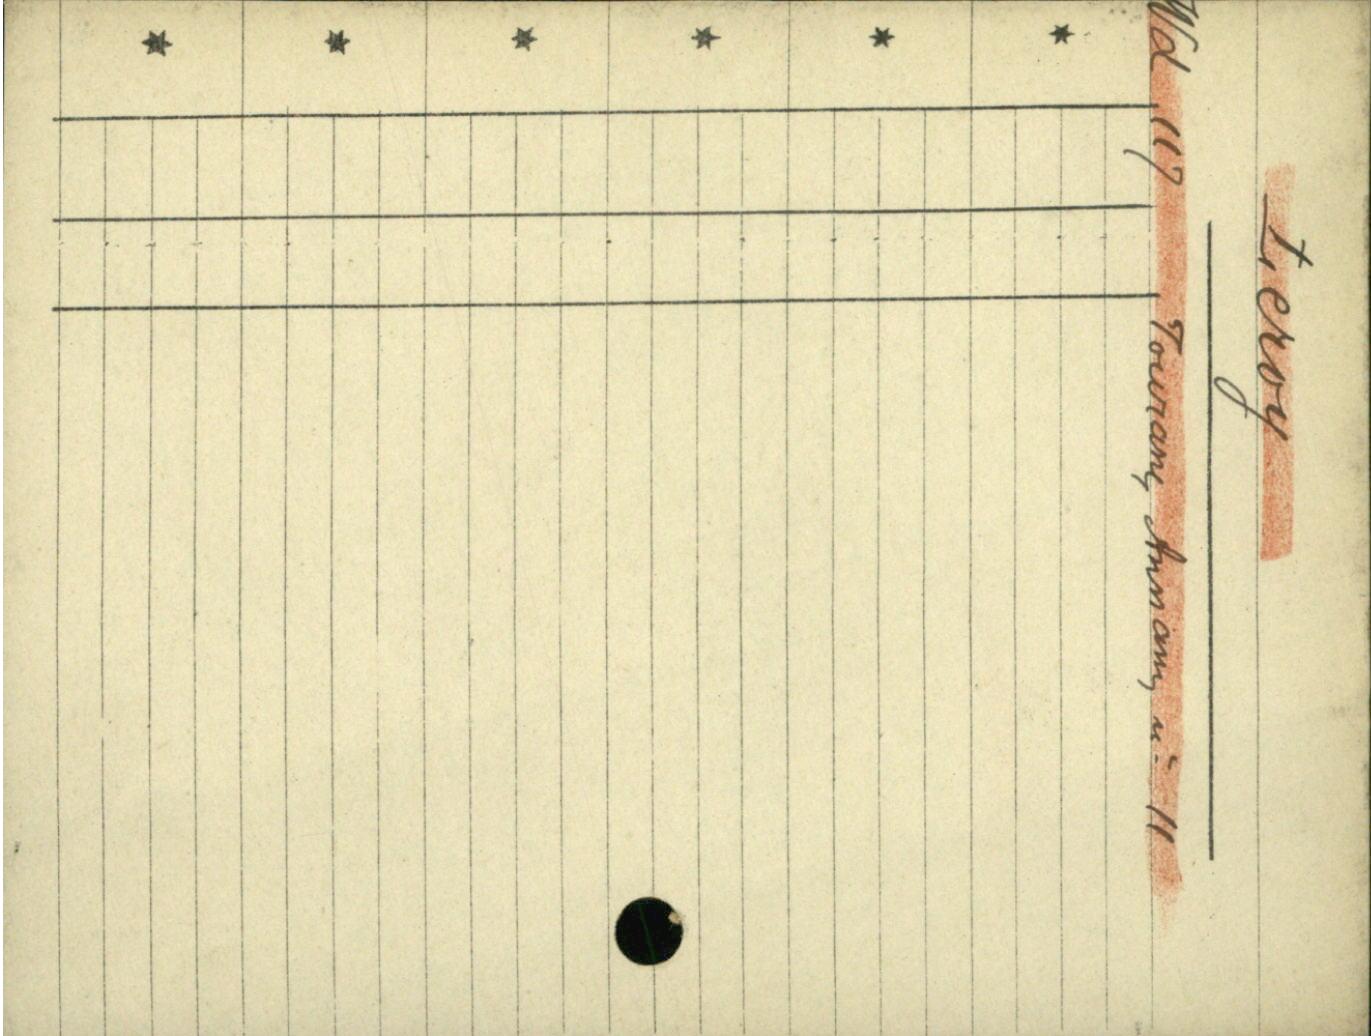 Leroy
Wd 117 Tourane, Annam, n° 11